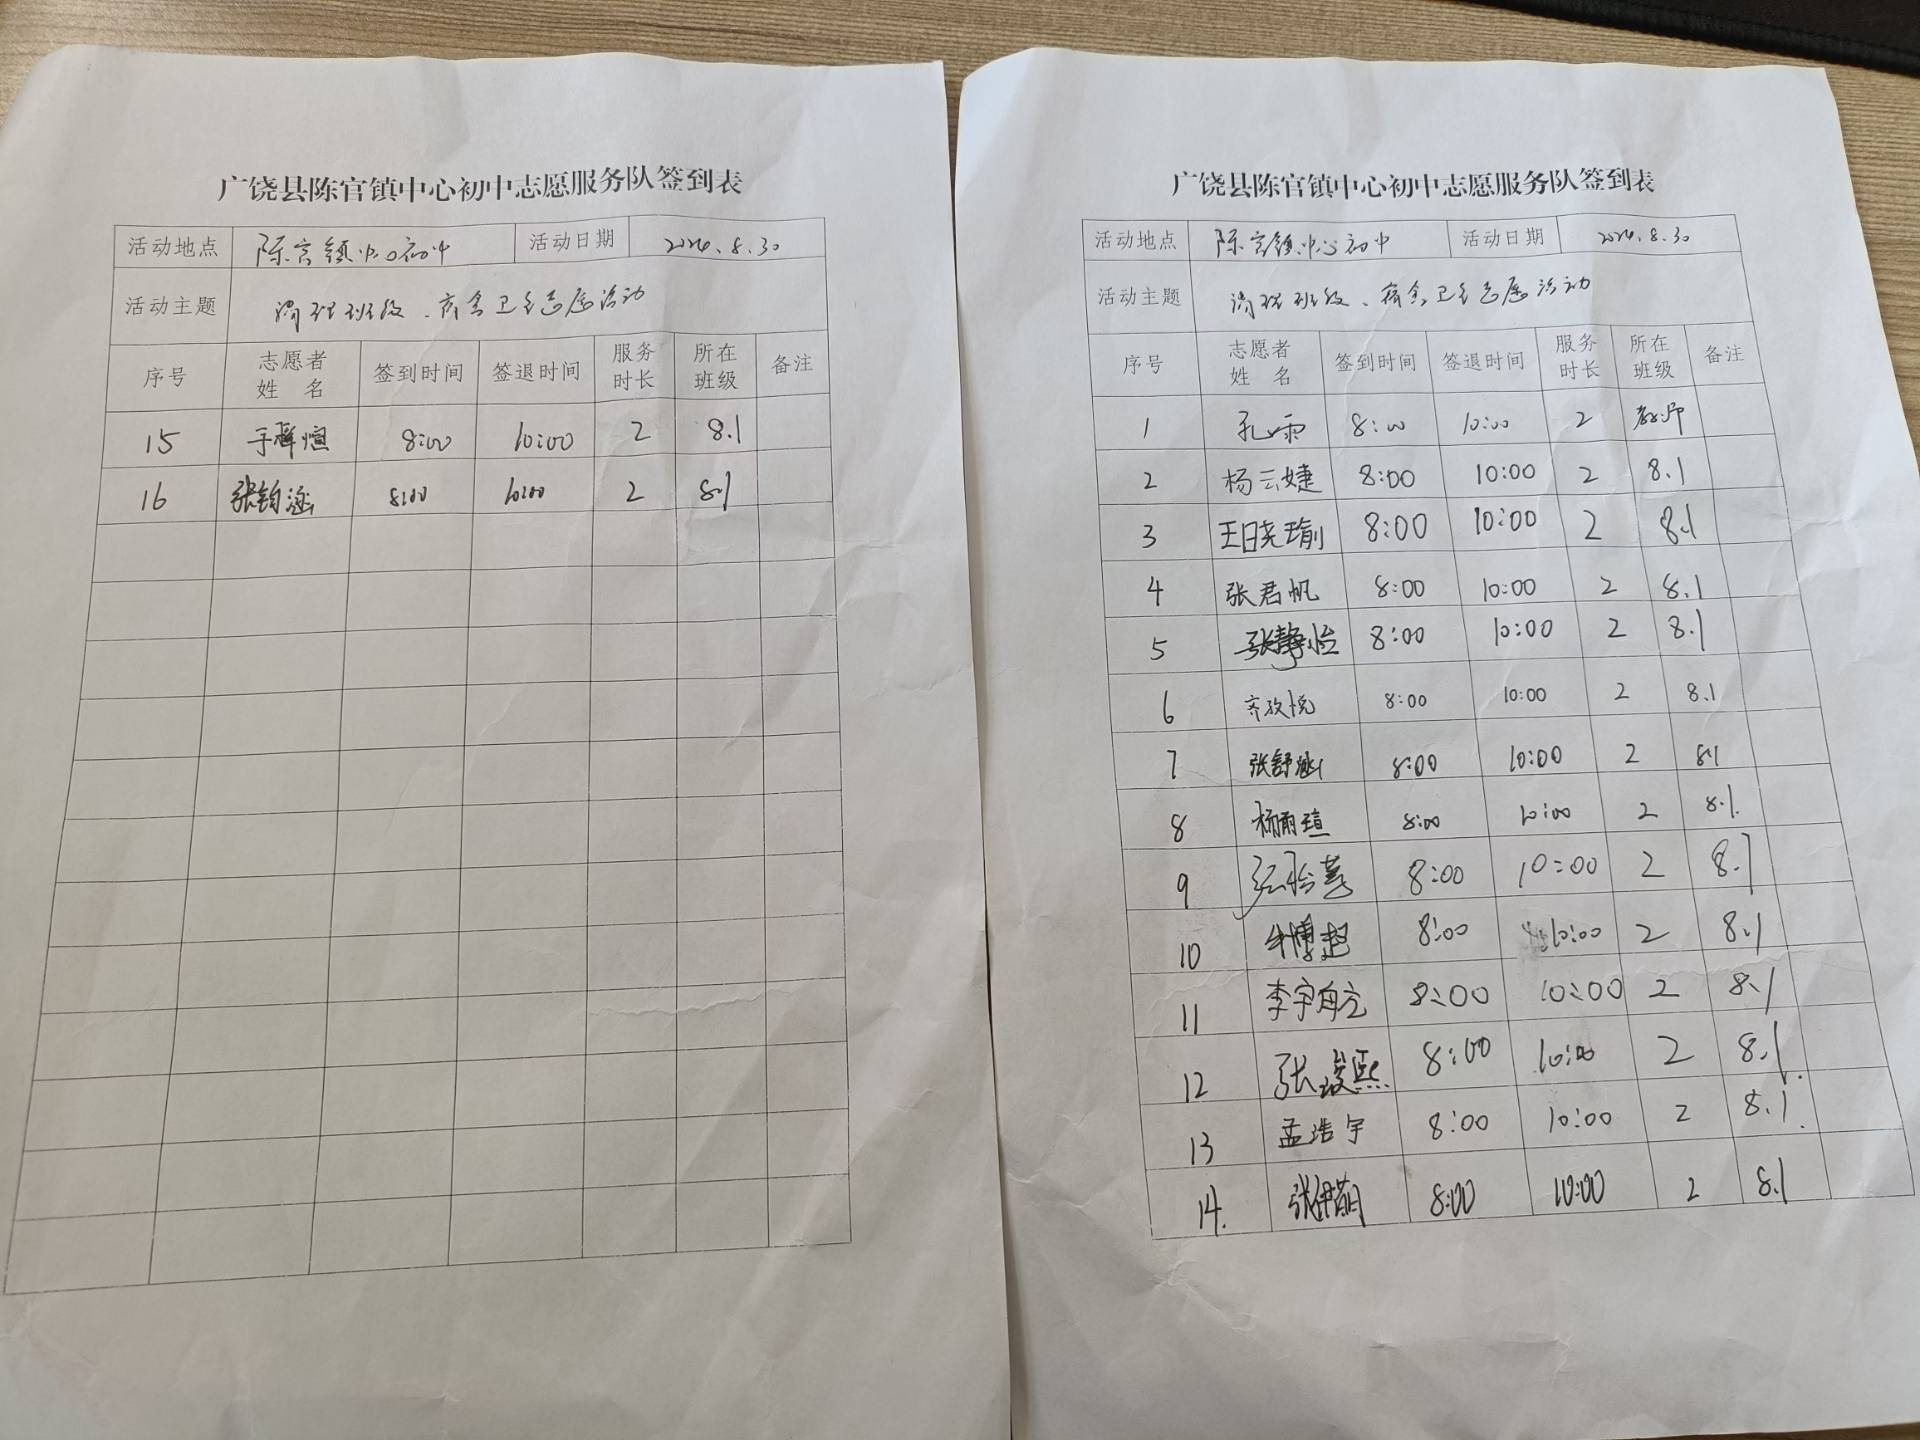 广饶县陈官镇中心初中志愿服务队签到表
活动地点 陈官镇中心初中 活动日期 2024.8.30
活动主题 清理班级、宿舍卫生志愿活动
序号 志愿者姓名 签到时间 签退时间 服务时长 所在班级 备注
15 于 8:00 10:00 2 8.1
16 张钧涵 8:00 10:00 2 8.1
广饶县陈官镇中心初中志愿服务队签到表
活动地点 陈官镇中心初中 活动日期 2024.8.30
活动主题 清理班级、宿舍卫生志愿活动
序号 志愿者姓名 签到时间 签退时间 服务时长 所在班级 备注
1 孔雨 8:00 10:00 2 教师
2 杨云婕 8:00 10:00 2 8.1
3 王晓瑜 8:00 10:00 2 8.1
4 张君帆 8:00 10:00 2 8.1
5 张静怡 8:00 10:00 2 8.1
6 齐孜悦 8:00 10:00 2 8.1
7 张舒涵 8:00 10:00 2 8.1
8 杨雨瑄 8:00 10:00 2 8.1.
9 8:00 10:00 2 8.1
10 牛博超 8:00 10:00 2 8.1
11 李宇航 8:00 10:00 2 8.1
12 张峻熙 8:00 10:00 2 8.1.
13 孟浩宇 8:00 10:00 2 8.1.
14. 张伊萌 8:00 10:00 2 8.1